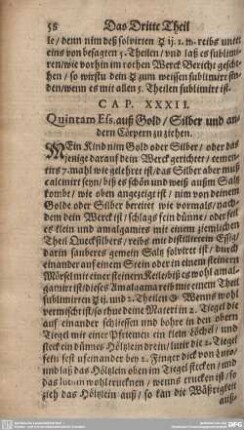 58 Das Dritte Theil
le / denn nim deß solvirten ☿ ij. t. m. reibs unter
eins von besagten 5. Theilen / und laß es sublimi-
ren / wie vorhin im rothen Werck Bericht gesche-
hen / so wirstu dein ☿ zum weissen sublimirt fin-
den / wenn es mit allen 5. Theilen sublimirt ist.
CAP. XXXII.
Quintam Ess. auß Gold / Silber und an-
dern Cörpern zu ziehen.
MEin Kind nim Gold oder Silber / oder das
jenige darauf dein Werck gerichtet /
7. mahl wie gelehret ist / das Silber aber muß
calcinirt seyn / biß es schön und weiß auß Saltz
kombt / wie oben angezeiget ist / nim von deinem
Golde oder Silber bereitet wie vormals / nach-
dem dein Werck ist / schlags fein dünne / oder feil
es klein und amalgamirs mit einem ziemlichen
Theil Quecksilbers / reibs mit destillirtem Essig /
darin sauberes gemein Saltz solvirt ist / durch
einander auf einem Stein oder in einem steinern
Mörsel mit einer steinern Keile biß es wohl amal-
gamirt ist / dieses Amalgama reib mit einem Theil
sublimirten ☿ ij. und 2. Theilen Wenns wohl
vermischt ist / so thue deine Materi in 2. Tiegel die
auf einander schliessen und bohre in den obern
Tiegel mit einer Pfriemen ein klein Löchel / und
steck ein dünnes Höltzlein drein / lutir die 2. Tiegel
fein fest aufeinander bey 2. Finger dick von Luto /
und laß das Höltzlein oben im Tiegel stecken / und
das lutum wohl trucknen / wenns trucken ist / so
zieh das Höltzlein auß / so kan die Wäßrigkeit
auß-